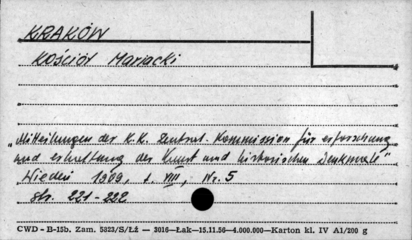 KRAKÓW
KOŚCIÓŁ Mariacki
"Mitteilungen der K.K. Zentral. Kommission für erforschung
und erhaltung der Kunst und historischen Denkmale"
Wiedeń 1909, t. VIII, Nr. 5
str. 221-222
CWD - B-15b. Zam. 5823/S/Łż — 3016—Łak—15.11.56—4.000.000—Karton kl. IV A1/200 g